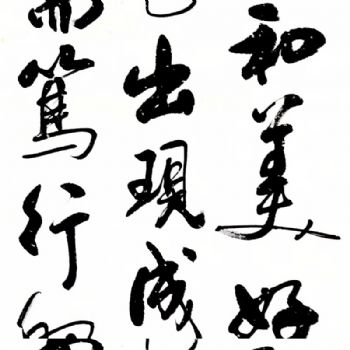 和美好
出現成
篤行